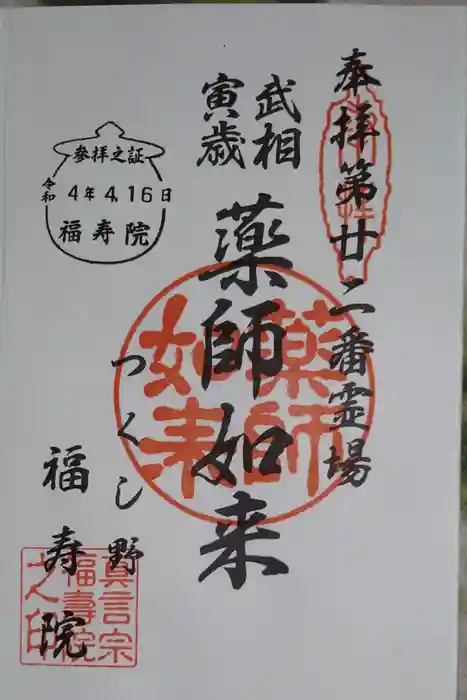 奉拝第廿二番霊場
武相
寅歳
薬師如来
薬師
如来
つくし野
福寿院
參拝之証
令和4年4.16日
福寿院
真言宗
福壽院